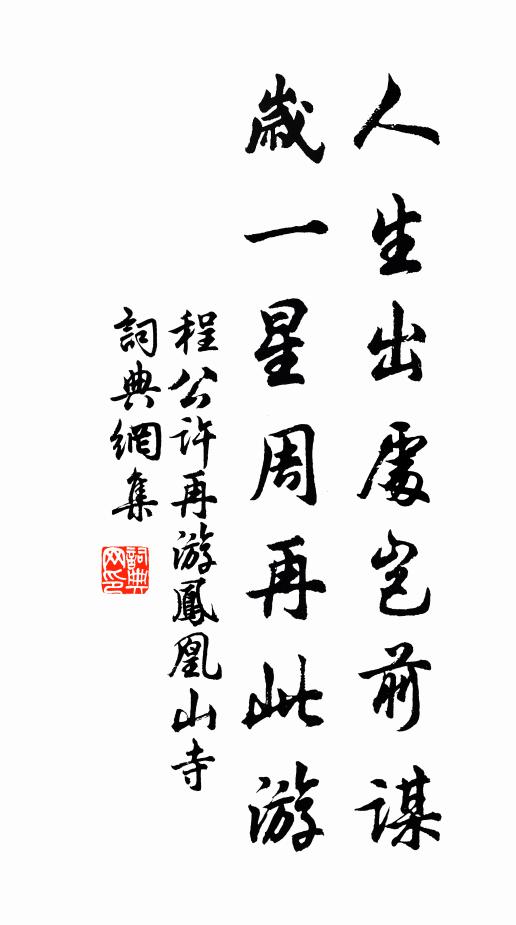 人生出處豈前謀
歲一星周再此游
程公許再游鳳凰山寺
詞典網集
詞典网印